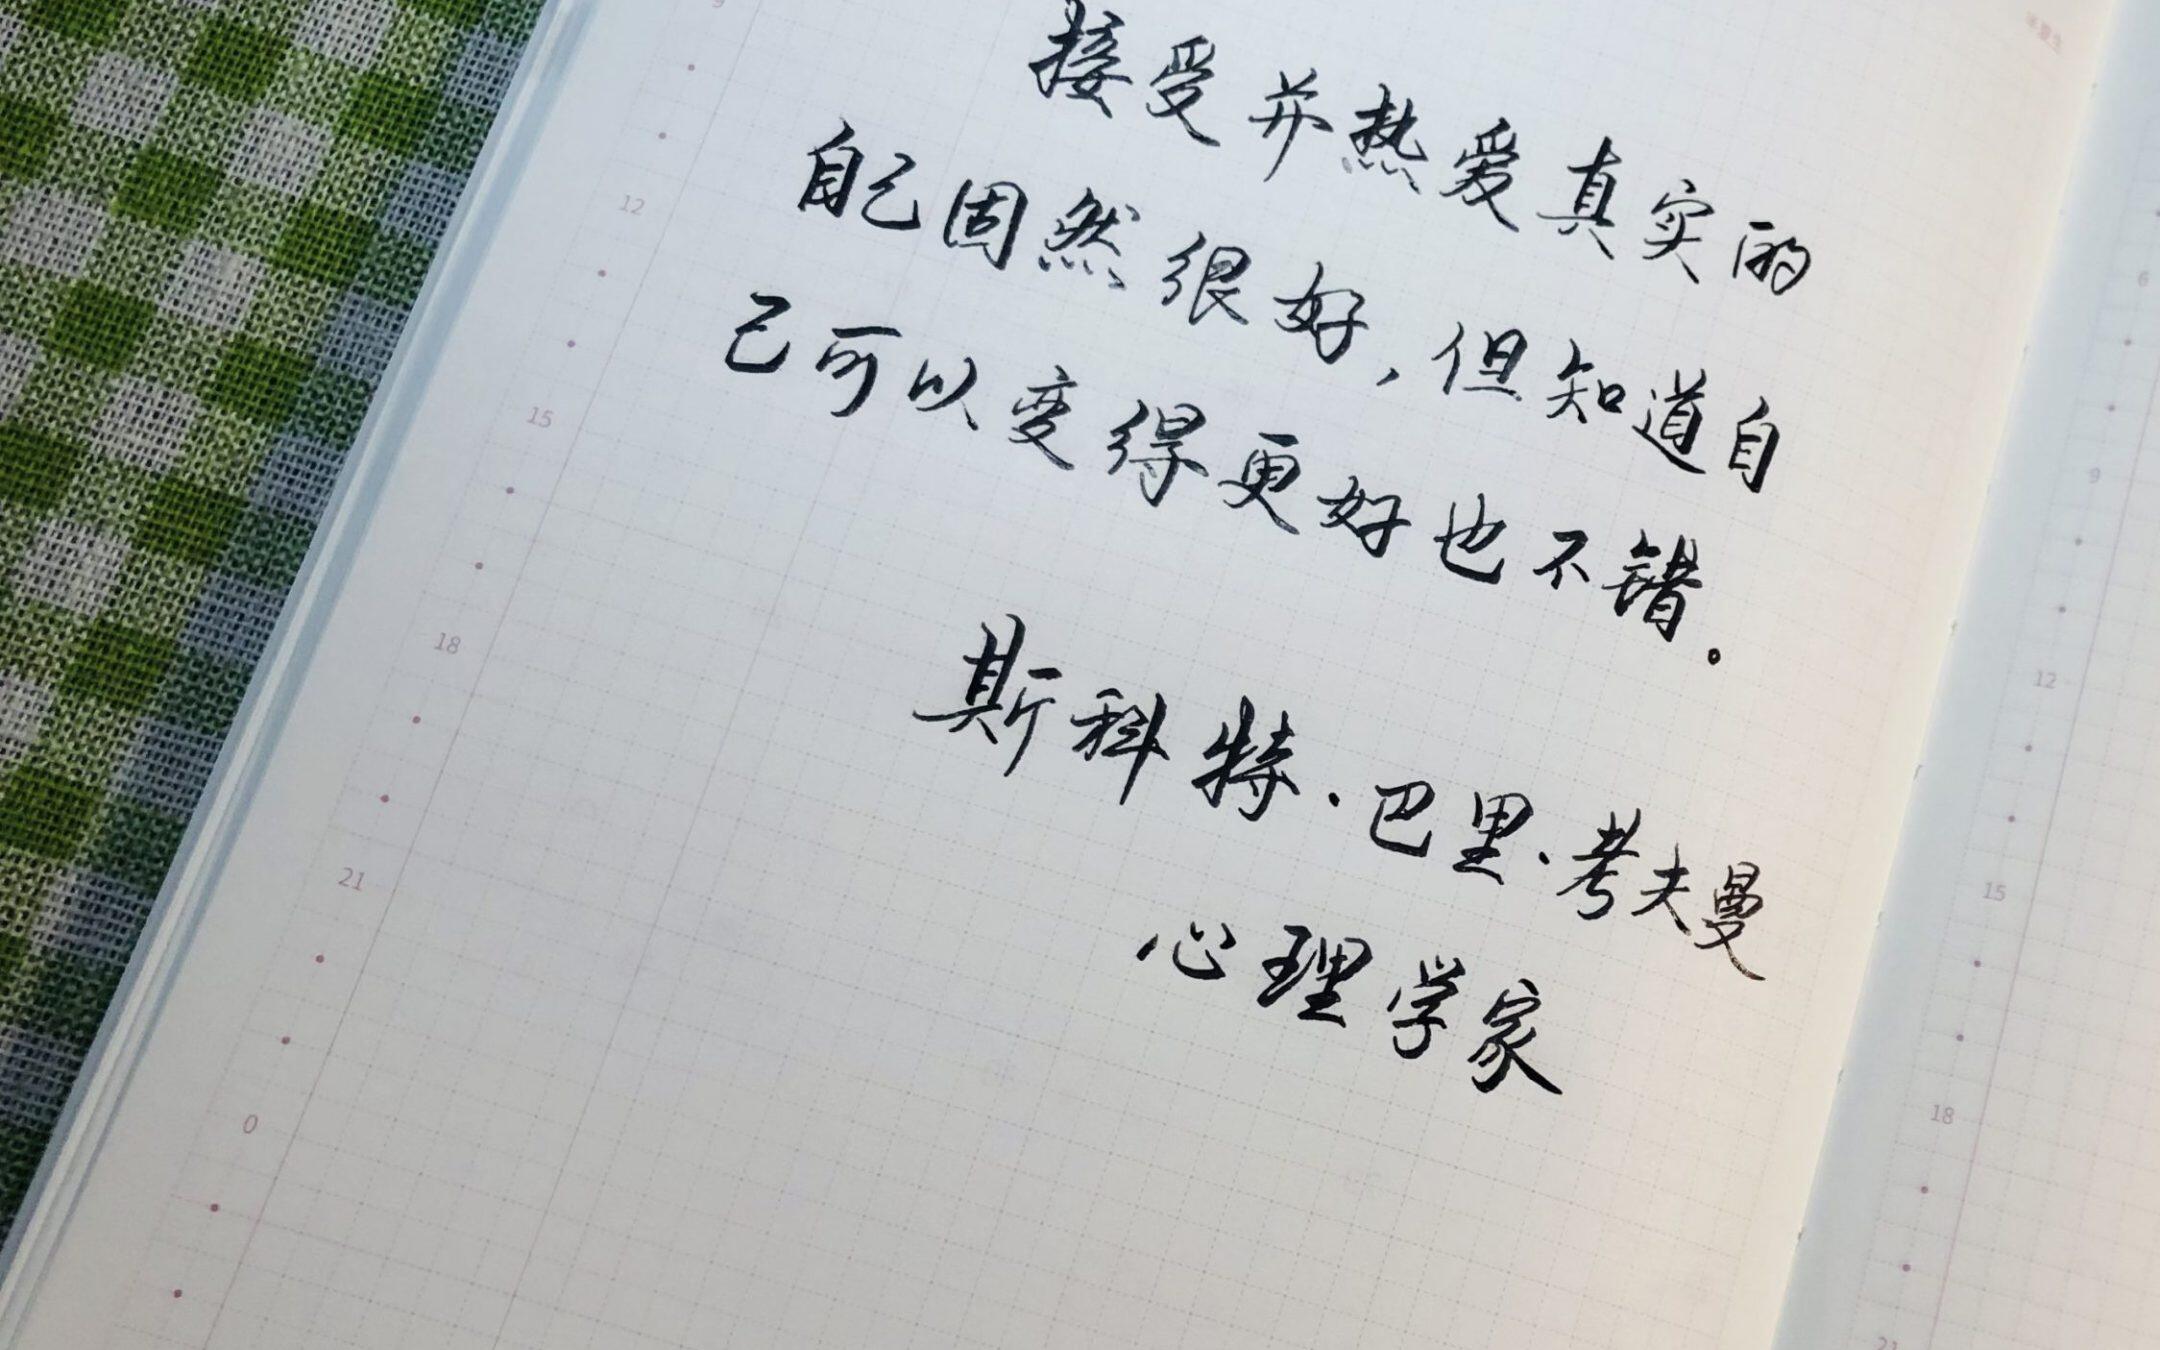 接受并热爱真实的
自己固然很好，但知道自
己可以变得更好也不错。
斯科特·巴里·考夫曼
心理学家
9
12
15
18
21
0
6
9
12
15
18
21